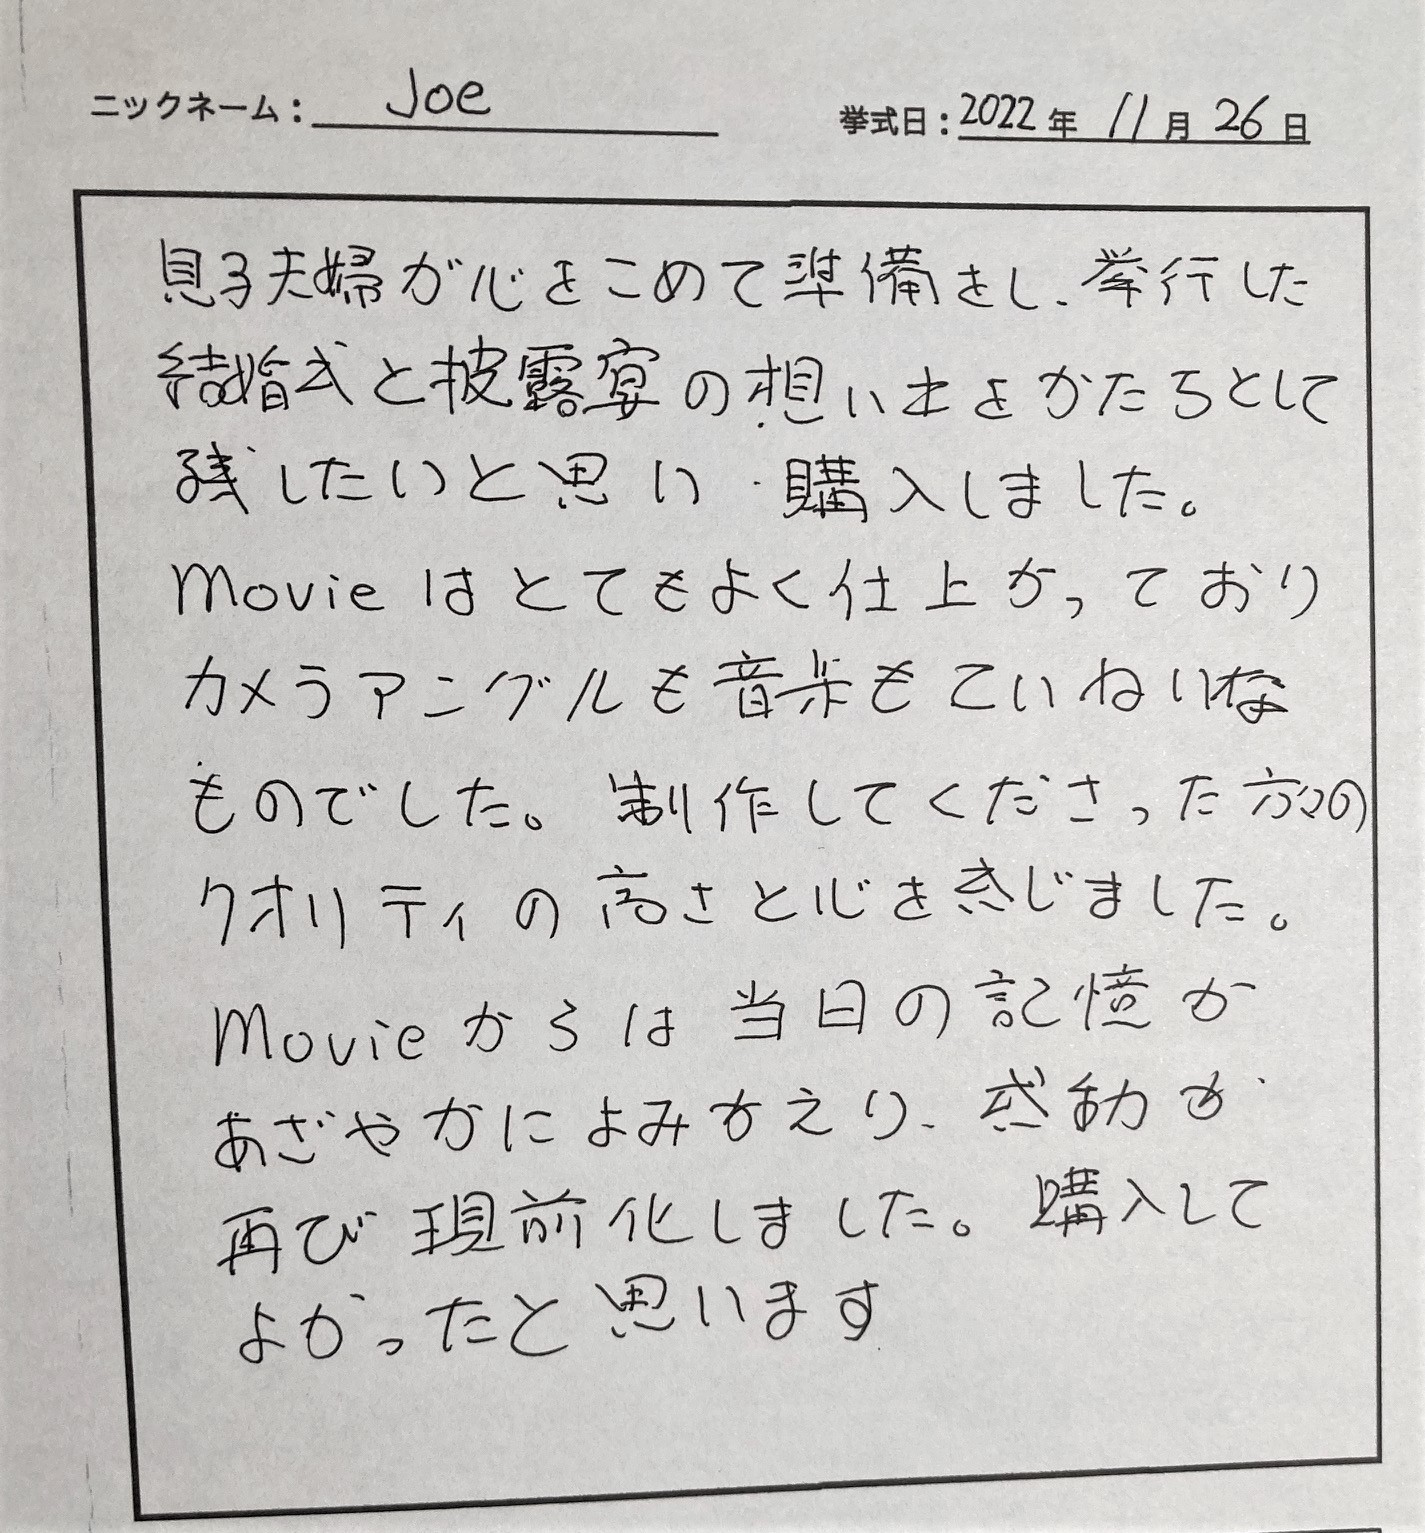 ニックネーム： Joe
挙式日：2022年 11月 26日
息子夫婦が心をこめて準備をし、挙行した
結婚式と披露宴の想い出をかたちとして
残したいと思い、購入しました。
Movieはとてもよく仕上がっており
カメラアングルも音楽もていねいな
ものでした。制作してくださった方々の
クオリティの高さと心を感じました。
Movieからは当日の記憶が
あざやかによみがえり、感動が
再び現前化しました。購入して
よかったと思います